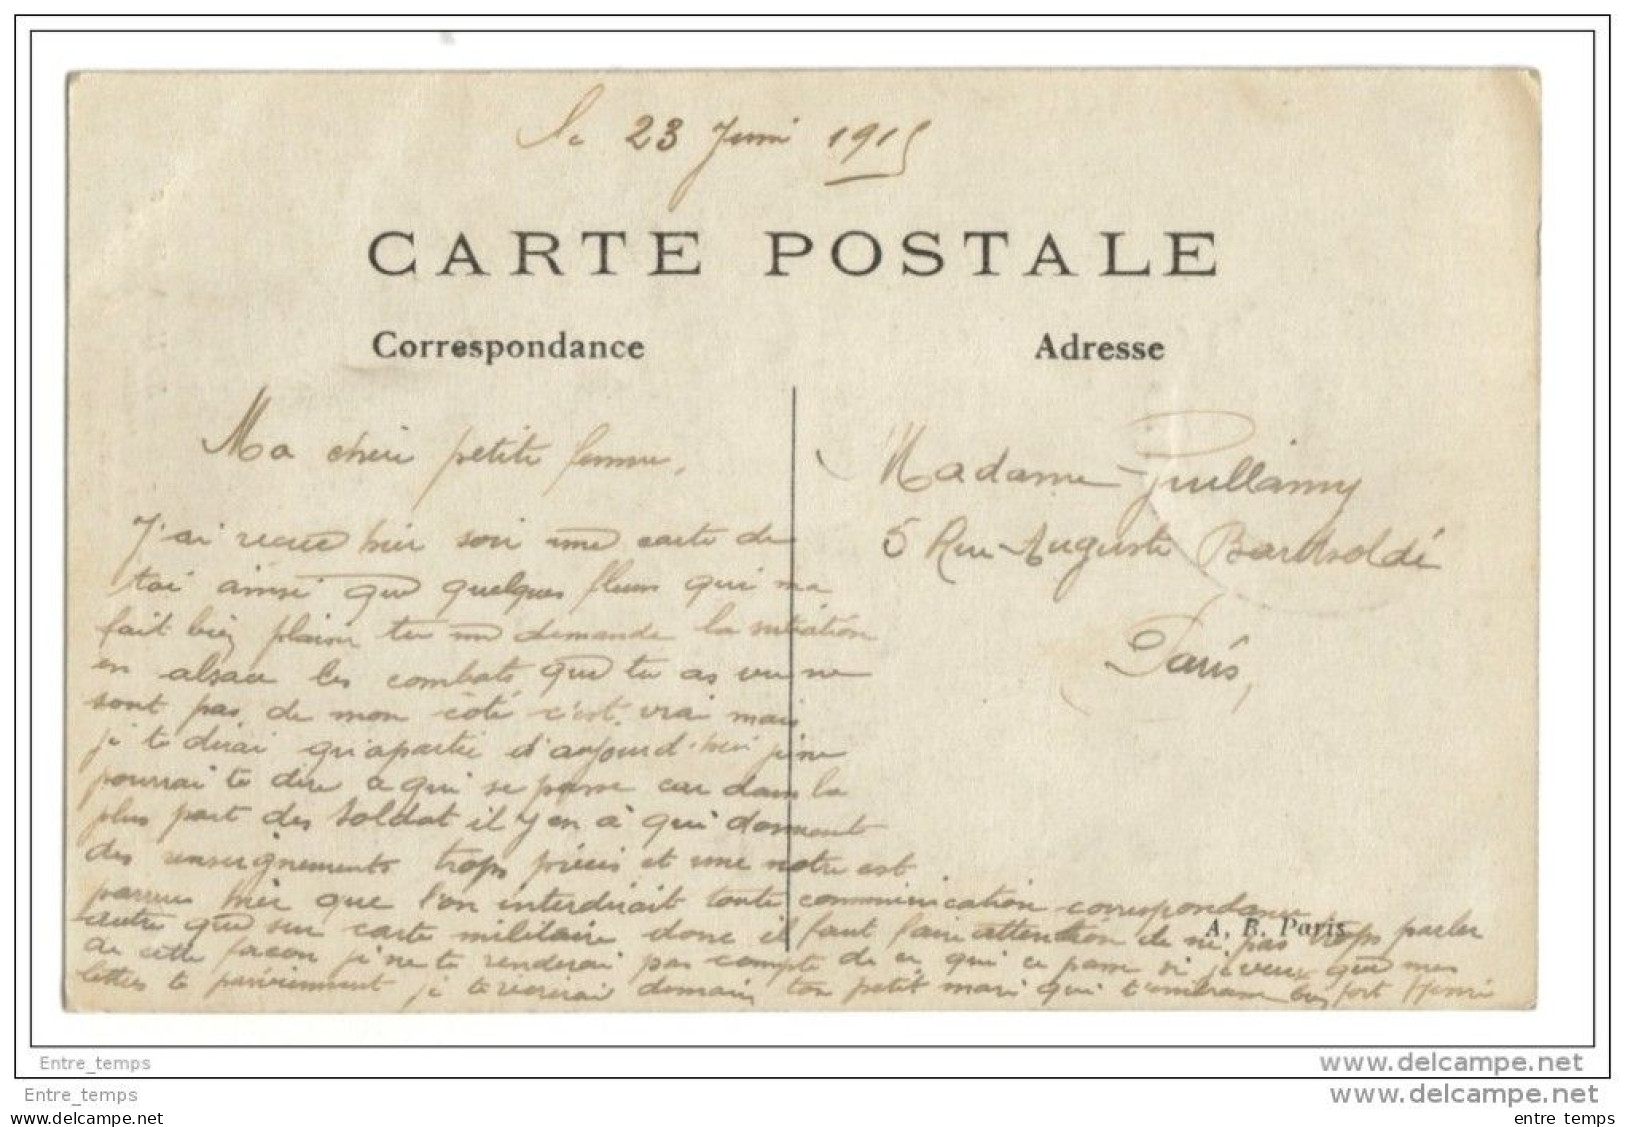 le 23 Juin 1915
CARTE POSTALE
Correspondance
Adresse
Ma chéri petite femme,
J'ai reçue hier soir une carte de
toi ainsi que quelques fleurs qui ma
fait bien plaisir tu me demande la sutiation
en alsace les combats que tu as vu ne
sont pas de mon côté c'est vrai mais
je te dirai qu'apartir d'aujourd'hui je ne
pourrai te dire a qui se passe car dans la
plus part des soldat il y en à qui donnent
des renseignements trops précis et une notre est
parrue hier que l'on interdirait toute communication correspondance
autre que sur carte militaire donc il faut faire attention de ne pas trops parler
de cette façon je ne te renderai pas compte de ce qui ce passe si je veux que mes
lettres te parviennent je te reverirai demain ton petit mari qui t'embrasse bien fort Henri
Madame Guillamy
5 Rue Auguste Bartholdi
Paris,
A. R. Paris
Entre_temps
www.delcampe.net
Entre_temps
www.delcampe.net
https://www.delcampe.net
entre temps